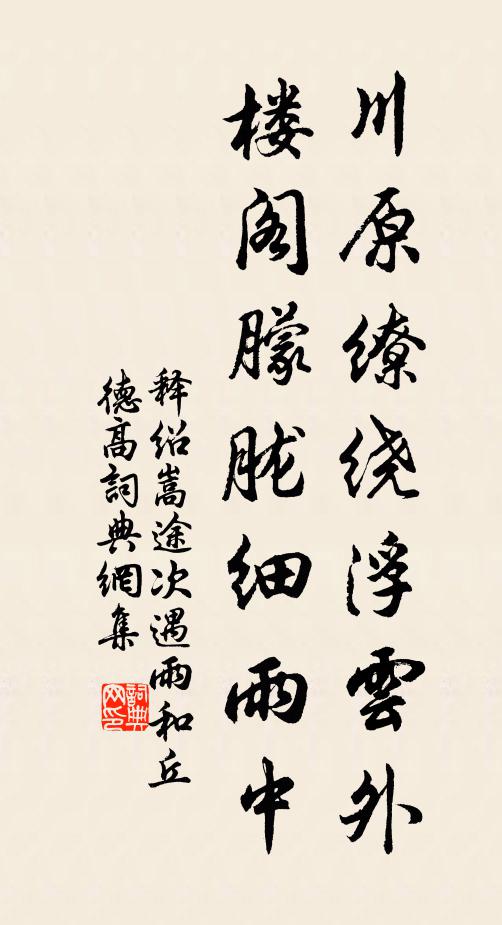 川原缭绕浮雲外
楼阁朦胧细雨中
释绍嵩途次遇雨和丘
德高詞典網集
詞典网印